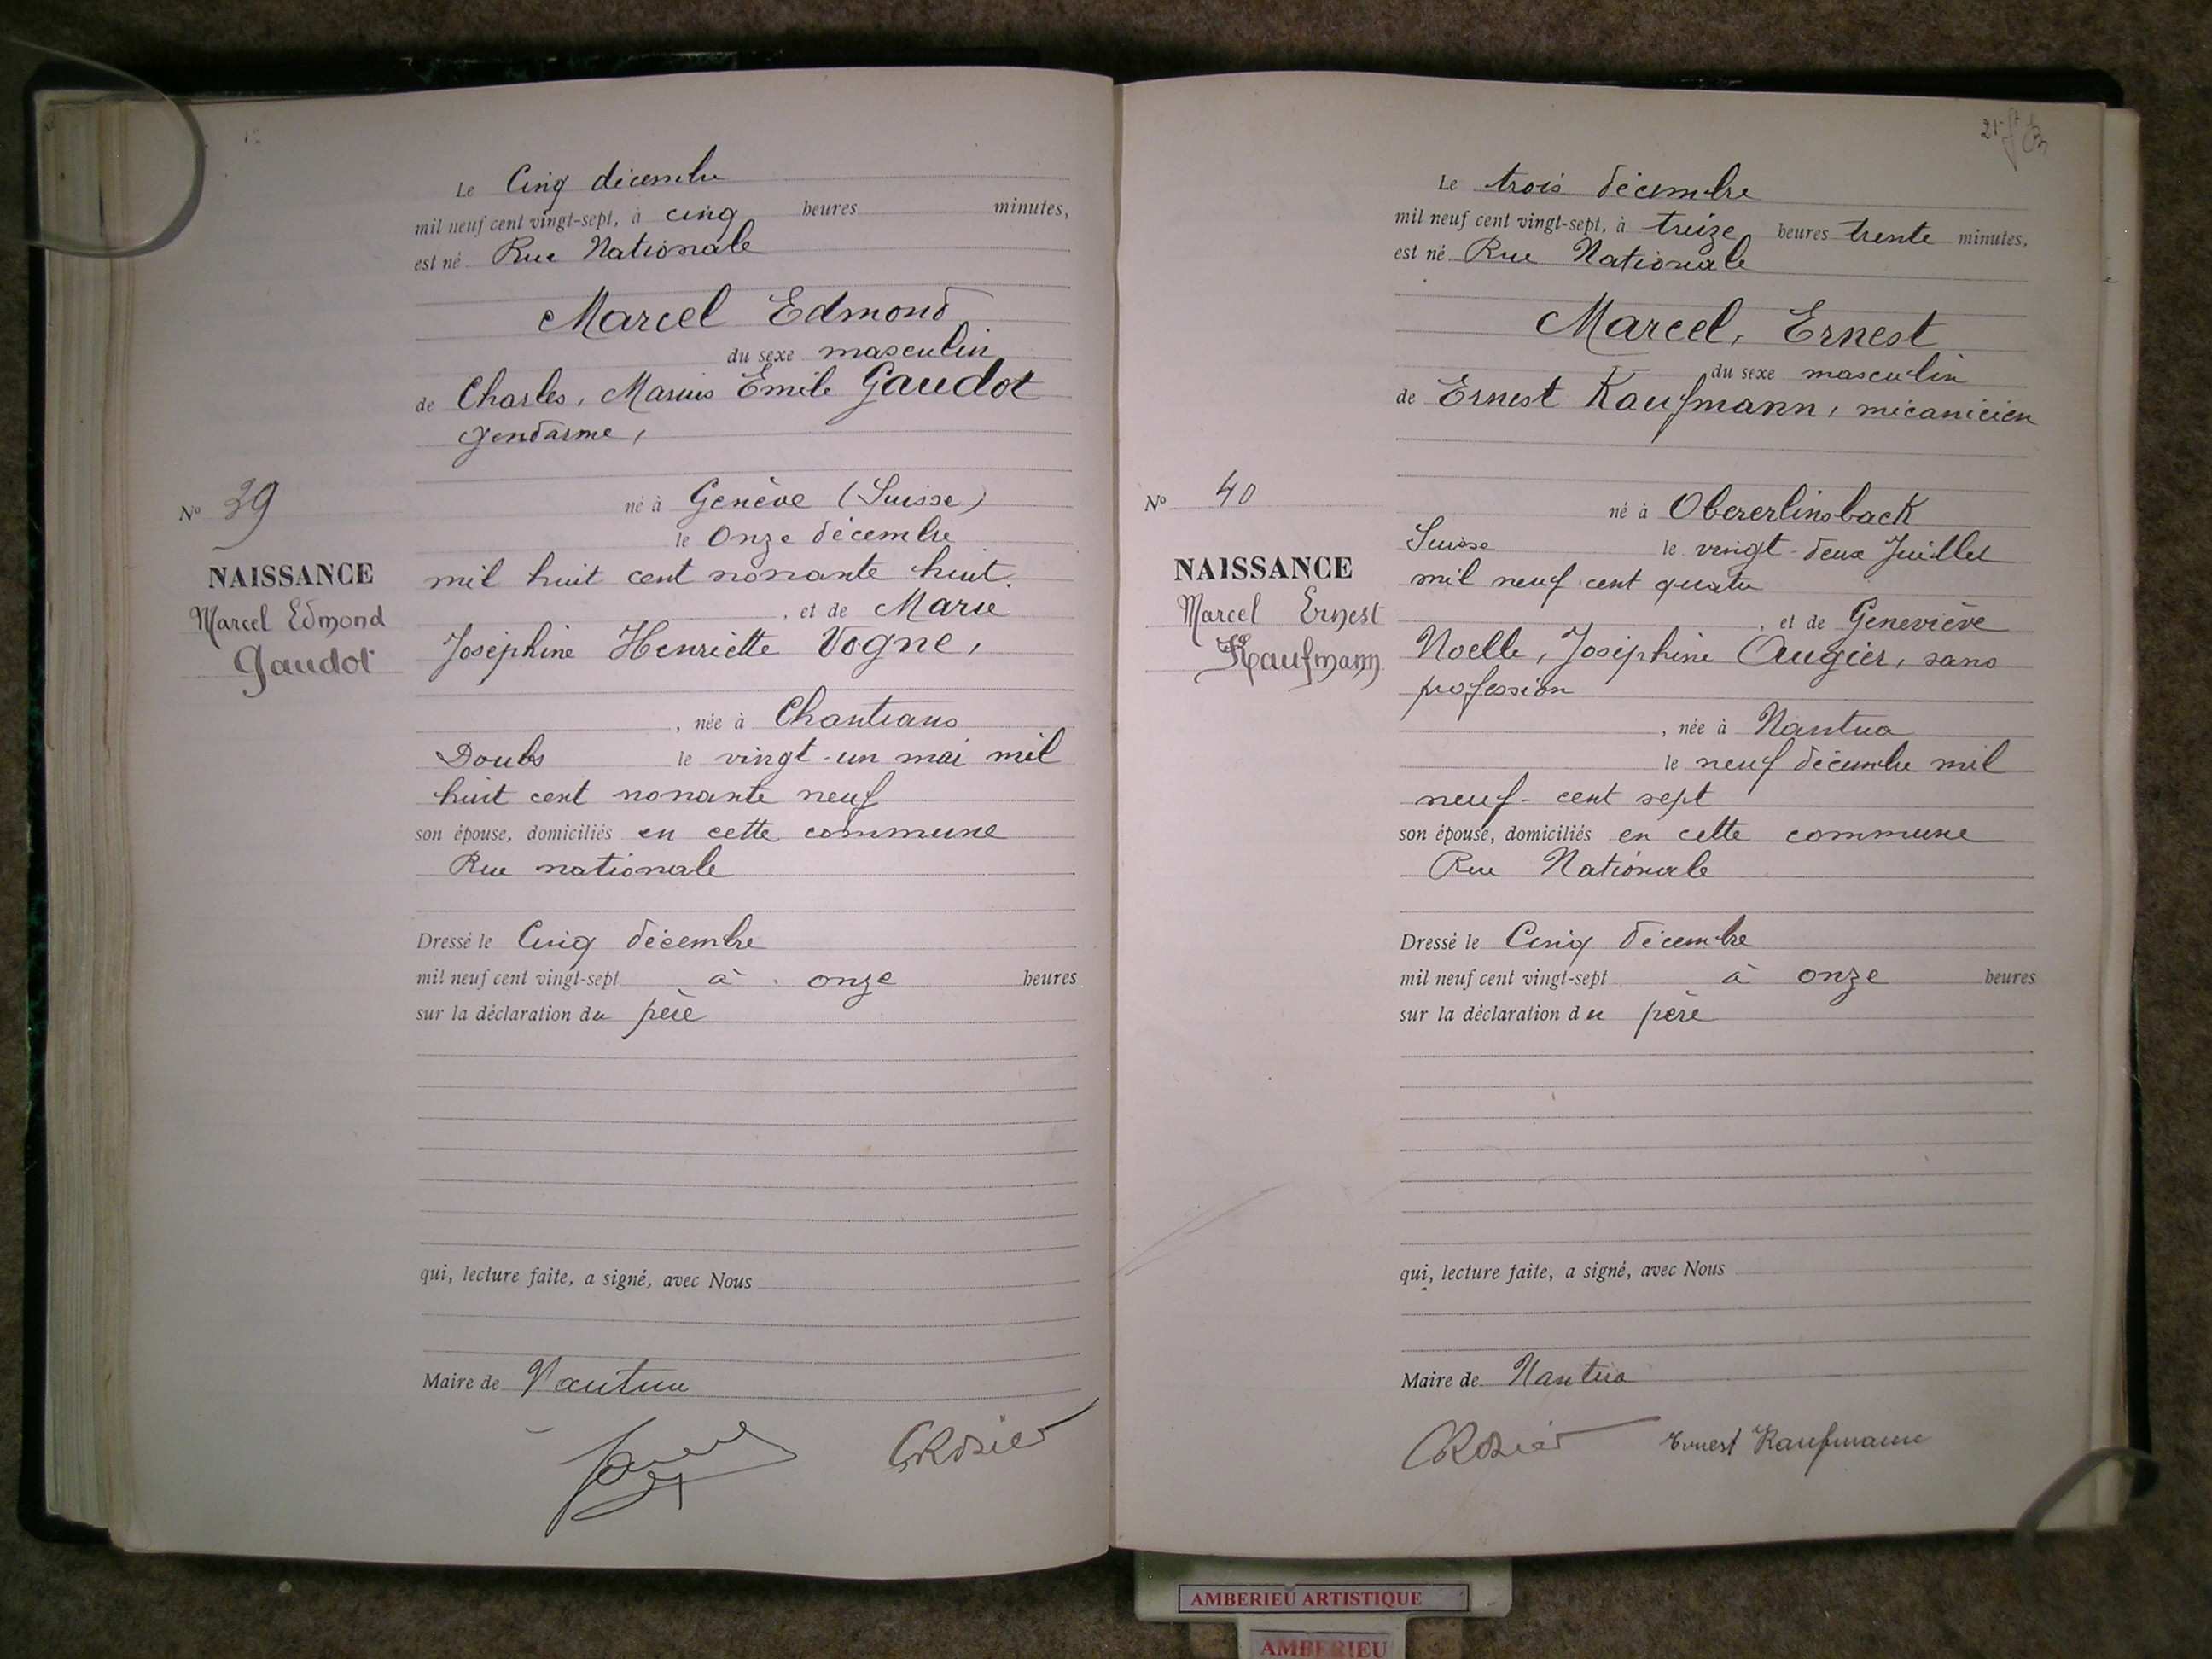 Le Cinq décembre
mil neuf cent vingt-sept, à cinq heures minutes,
est né Rue Nationale
Marcel Edmond
du sexe masculin
de Charles, Marius Emile Gaudot
gendarme,
né à Genève (Suisse)
le Onze décembre
mil huit cent nonante huit.
, et de Marie
Joséphine Henriette Vogne,
, née à Chantrans
Doubs le vingt-un mai mil
huit cent nonante neuf
son épouse, domiciliés en cette commune
Rue nationale
Dressé le Cinq décembre
mil neuf cent vingt-sept à onze heures
sur la déclaration du père
qui, lecture faite, a signé, avec Nous
Maire de Nantua
CRosier
No 39
NAISSANCE
Marcel Edmond
Gaudot
21
Le trois décembre
mil neuf cent vingt-sept, à treize heures trente minutes,
est né Rue Nationale
Marcel, Ernest
du sexe masculin
de Ernest Kaufmann, mécanicien
né à Obererlinsback
Suisse le vingt-deux Juillet
mil neuf cent quatre
, et de Geneviève
Noelle, Joséphine Augier, sans
profession
, née à Nantua
le neuf décembre mil
neuf-cent sept
son épouse, domiciliés en cette commune
Rue Nationale
Dressé le Cinq décembre
mil neuf cent vingt-sept à onze heures
sur la déclaration du père
qui, lecture faite, a signé, avec Nous
Maire de Nantua
CRosier Ernest Kaufmann
No 40
NAISSANCE
Marcel Ernest
Kaufmann
AMBERIEU ARTISTIQUE
AMBERIEU